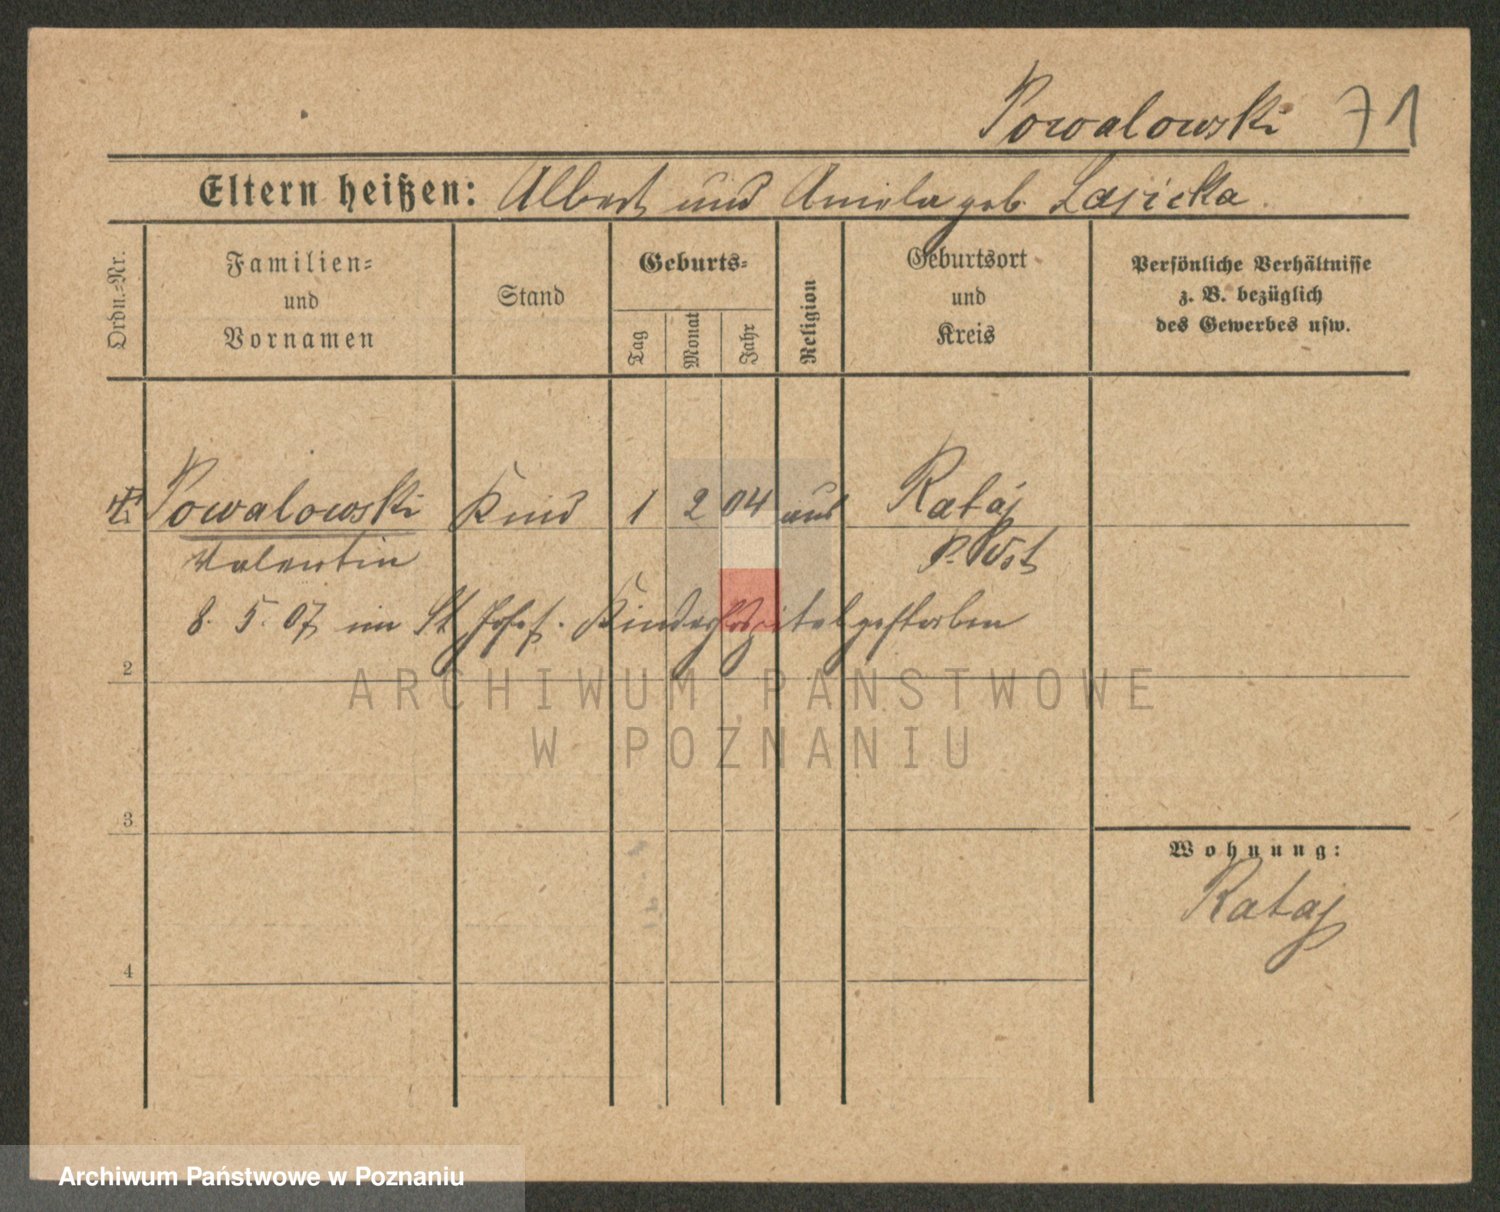 Powalowski 71
Eltern heißen: Albert und Aniela geb. Lasicka.
Ordn.-Nr.
Familien-
und
Vornamen
Stand
Geburts-
Tag
Monat
Jahr
Religion
Geburtsort
und
Kreis
Persönliche Verhältnisse
z. B. bezüglich
des Gewerbes usw.
Powalowski Kind 1 2 04 Rataj
Valentin P. Ost
8. 5. 07 im St. Josef. Kinderhospital gestorben
2
ARCHIWUM PAŃSTWOWE
W POZNANIU
3
Wohnung:
Rataj
4
Archiwum Państwowe w Poznaniu